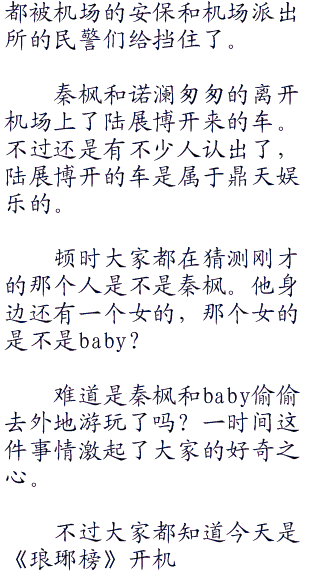 都被机场的安保和机场派出
所的民警们给挡住了。
秦枫和诺澜匆匆的离开
机场上了陆展博开来的车。
不过还是有不少人认出了，
陆展博开的车是属于鼎天娱
乐的。
顿时大家都在猜测刚才
的那个人是不是秦枫。他身
边还有一个女的，那个女的
是不是baby？
难道是秦枫和baby偷偷
去外地游玩了吗？一时间这
件事情激起了大家的好奇之
心。
不过大家都知道今天是
《琅琊榜》开机